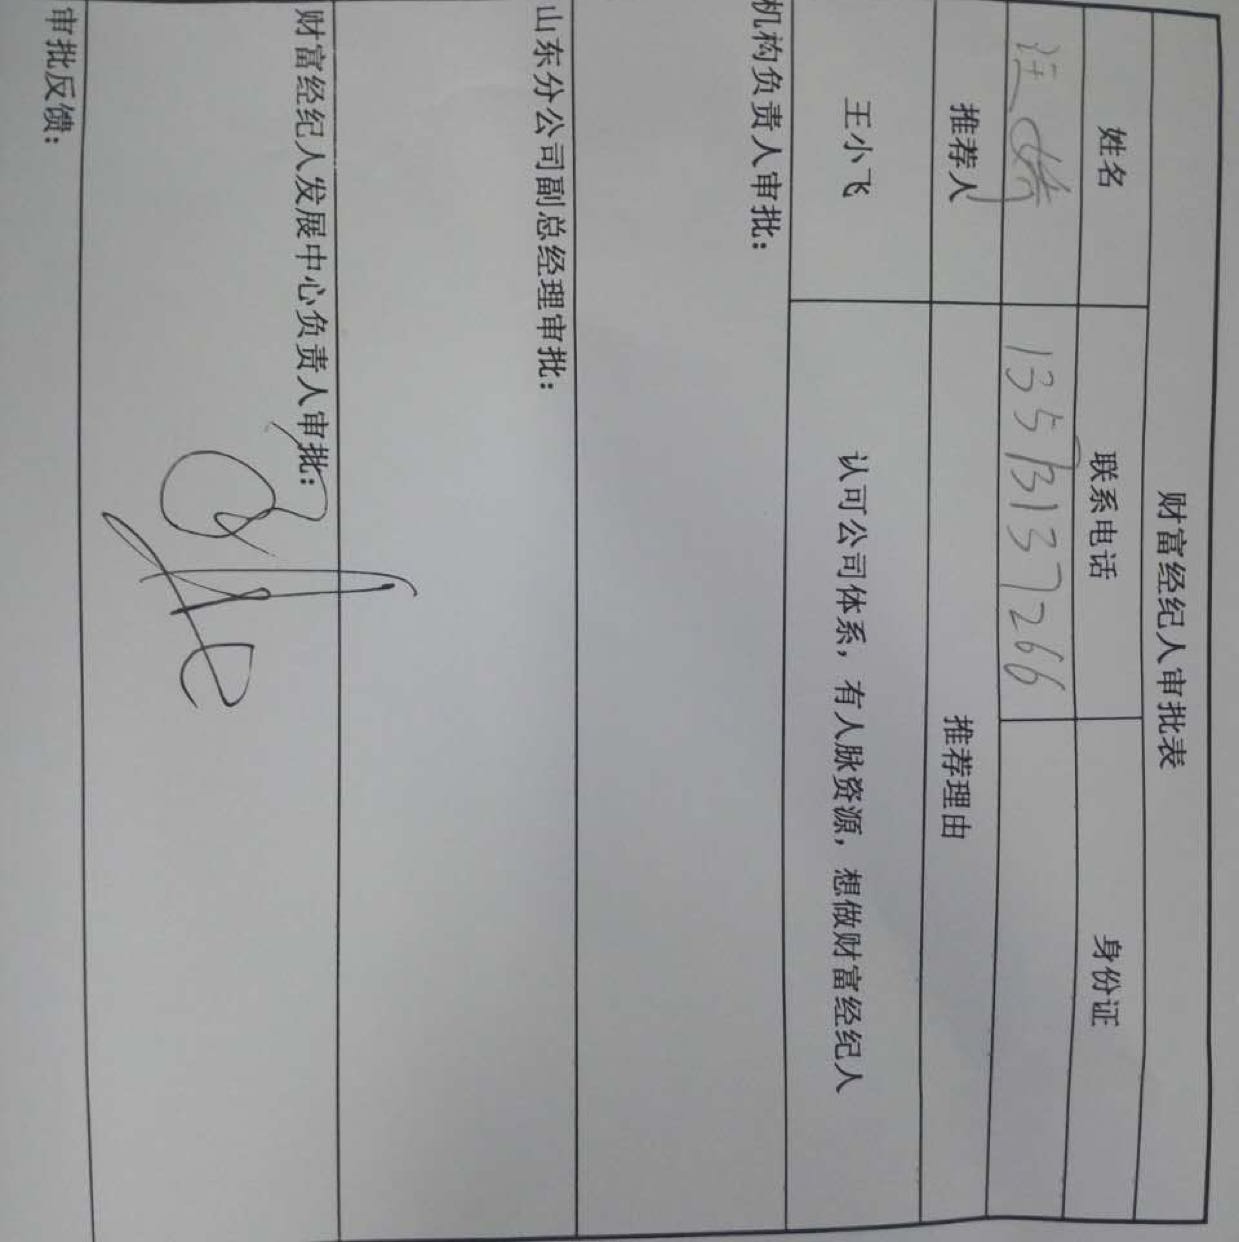 财富经纪人审批表
姓名 联系电话 身份证
汪娇 13573137266
推荐人 推荐理由
王小飞 认可公司体系，有人脉资源，想做财富经纪人
机构负责人审批：
山东分公司副总经理审批：
财富经纪人发展中心负责人审批：
审批反馈：